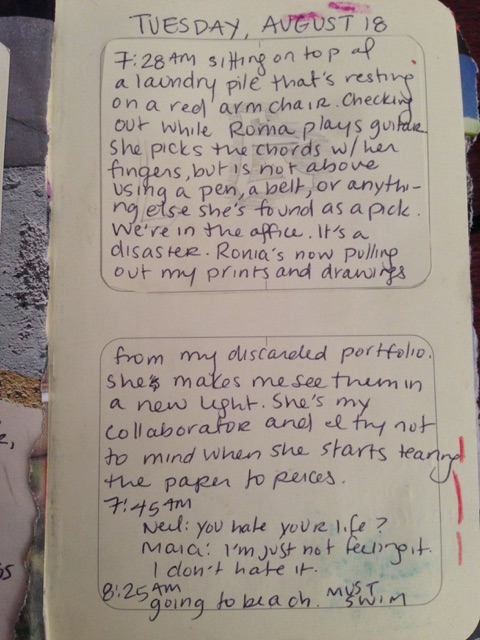 TUESDAY, AUGUST 18
7:28 AM sitting on top of
a laundry pile that's resting
on a red armchair. Checking
out while Roma plays guitar
She picks the chords w/ her
fingers, but is not above
using a pen, a belt, or anythi-
ng else she's found as a pick.
We're in the office. It's a
disaster. Roma's now pulling
out my prints and drawings
from my discarded portfolio.
She makes me see them in
a new light. She's my
collaborator and I try not
to mind when she starts tearing
the paper to peices.
7:45 AM
Neil: you hate your life?
Marci: I'm just not feeling it.
I don't hate it.
8:25 AM
going to beach. MUST
SWIM